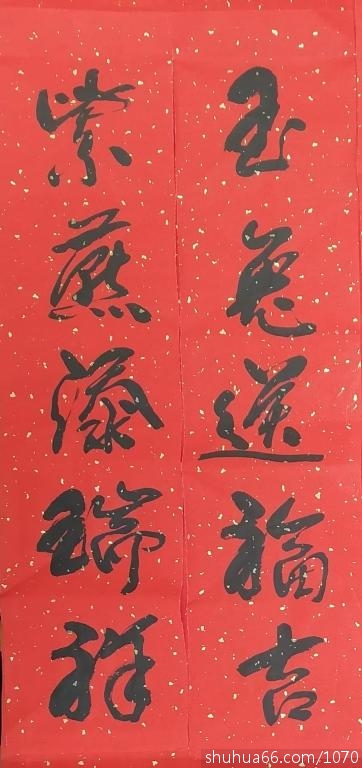 玉兔送福吉
紫燕添瑞祥
shuhua66.com/1070